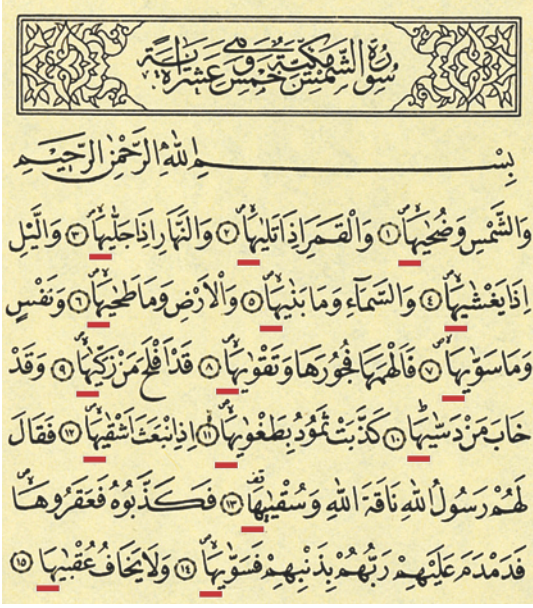 سُورَةُ الشَّمْسِ مَكِّيَّةٌ وَهِيَ خَمْسَ عَشْرَةَ اٰيَةً
بِسْمِ اللّٰهِ الرَّحْمٰنِ الرَّحٖيمِ
وَالشَّمْسِ وَضُحٰيهَاۙ ﴿١﴾ وَالْقَمَرِ اِذَا تَلٰيهَاۙ ﴿٢﴾ وَالنَّهَارِ اِذَا جَلّٰيهَاۙ ﴿٣﴾ وَالَّيْلِ
اِذَا يَغْشٰيهَاۙ ﴿٤﴾ وَالسَّمَٓاءِ وَمَا بَنٰيهَاۙ ﴿٥﴾ وَالْاَرْضِ وَمَا طَحٰيهَاۙ ﴿٦﴾ وَنَفْسٍ
وَمَا سَوّٰيهَاۙ ﴿٧﴾ فَاَلْهَمَهَا فُجُورَهَا وَتَقْوٰيهَاۙ ﴿٨﴾ قَدْ اَفْلَحَ مَنْ زَكّٰيهَاۙ ﴿٩﴾ وَقَدْ
خَابَ مَنْ دَسّٰيهَاۜ ﴿١٠﴾ كَذَّبَتْ ثَمُودُ بِطَغْوٰيهَاۙ ﴿١١﴾ اِذِ انْبَعَثَ اَشْقٰيهَاۙ ﴿١٢﴾ فَقَالَ
لَهُمْ رَسُولُ اللّٰهِ نَاقَةَ اللّٰهِ وَسُقْيٰيهَا قف ﴿١٣﴾ فَكَذَّبُوهُ فَعَقَرُوهَاۙ
فَدَمْدَمَ عَلَيْهِمْ رَبُّهُمْ بِذَنْبِهِمْ فَسَوّٰيهَاۙ ﴿١٤﴾ وَلَا يَخَافُ عُقْبٰيهَا ﴿١٥﴾